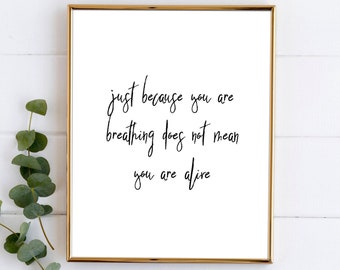 just because you are
breathing does not mean
you are alive